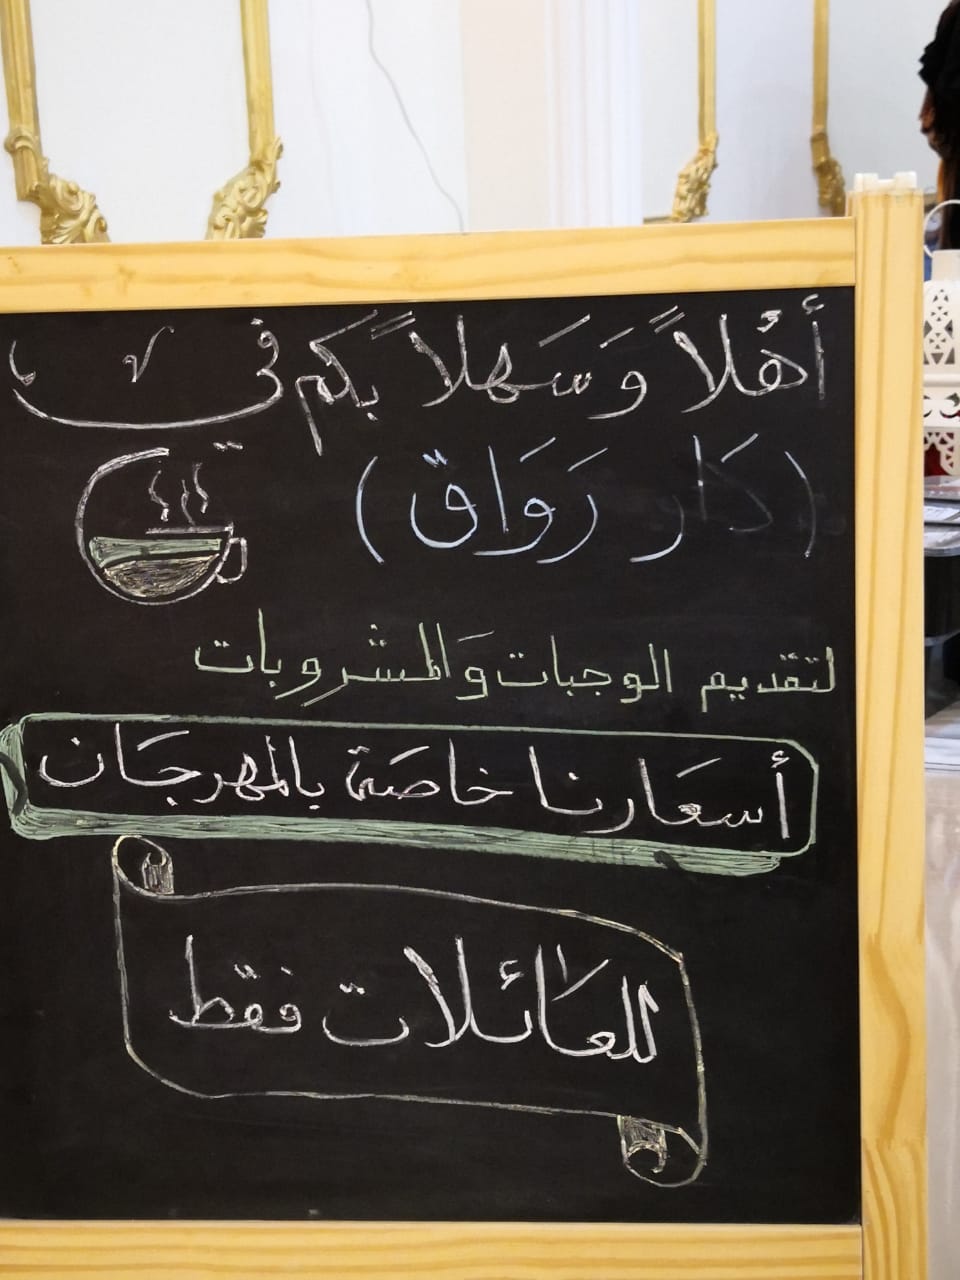 أَهْلاً وَسَهلاً بكم في
(دَار رَوَاق)
لتقديم الوجبات وَالمشروبات
أسعَارنا خاصَة بالمهرجَان
للعَائلات فقط